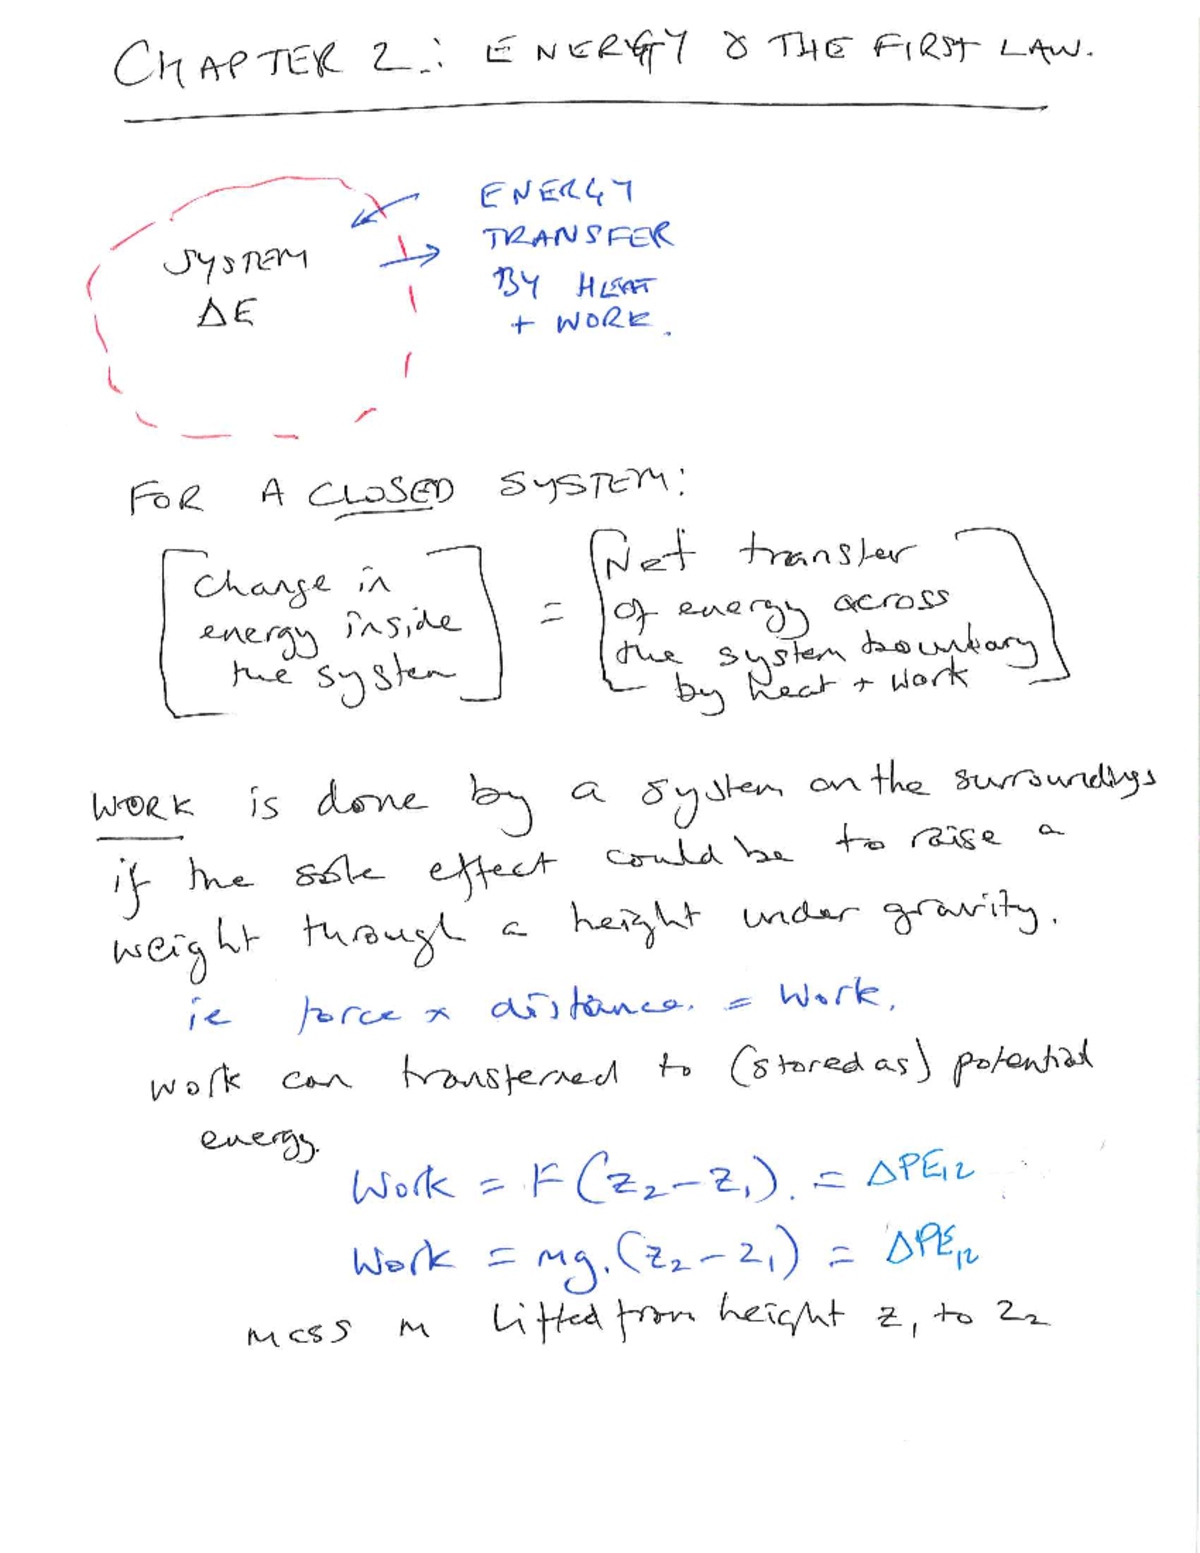 CHAPTER 2: ENERGY & THE FIRST LAW.
SYSTEM
ΔE
ENERGY
TRANSFER
BY HEAT
+ WORK.
FOR A CLOSED SYSTEM:
[Change in
energy inside
the system]
=
[Net transfer
of energy across
the system boundary
by heat + work]
WORK is done by a system on the surroundings
if the sole effect could be to raise a
weight through a height under gravity.
ie force × distance. = Work.
Work can transferred to (stored as) potential
energy.
Work = F(z₂-z₁). = ΔPE₁₂
Work = mg.(z₂-z₁) = ΔPE₁₂
mass m lifted from height z₁ to z₂